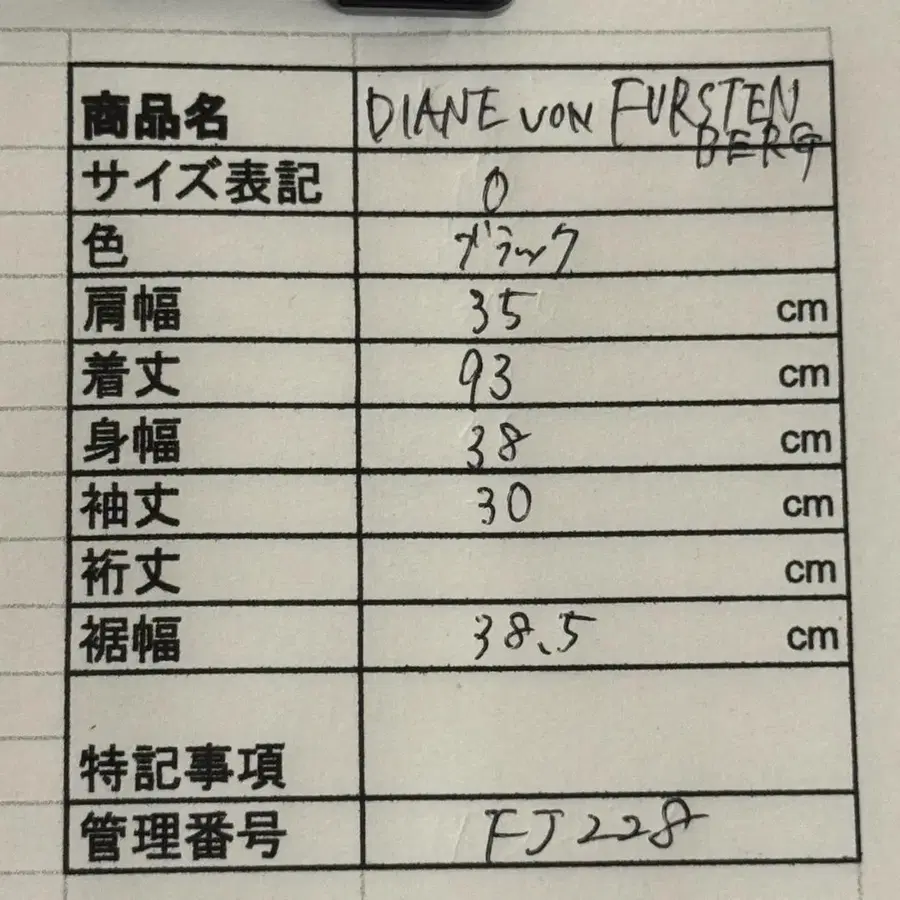 商品名 DIANE VON FURSTEN
BERG
サイズ表記 0
色 ブラック
肩幅 35 cm
着丈 93 cm
身幅 38 cm
袖丈 30 cm
裄丈 cm
裾幅 38.5 cm
特記事項
管理番号 FJ228